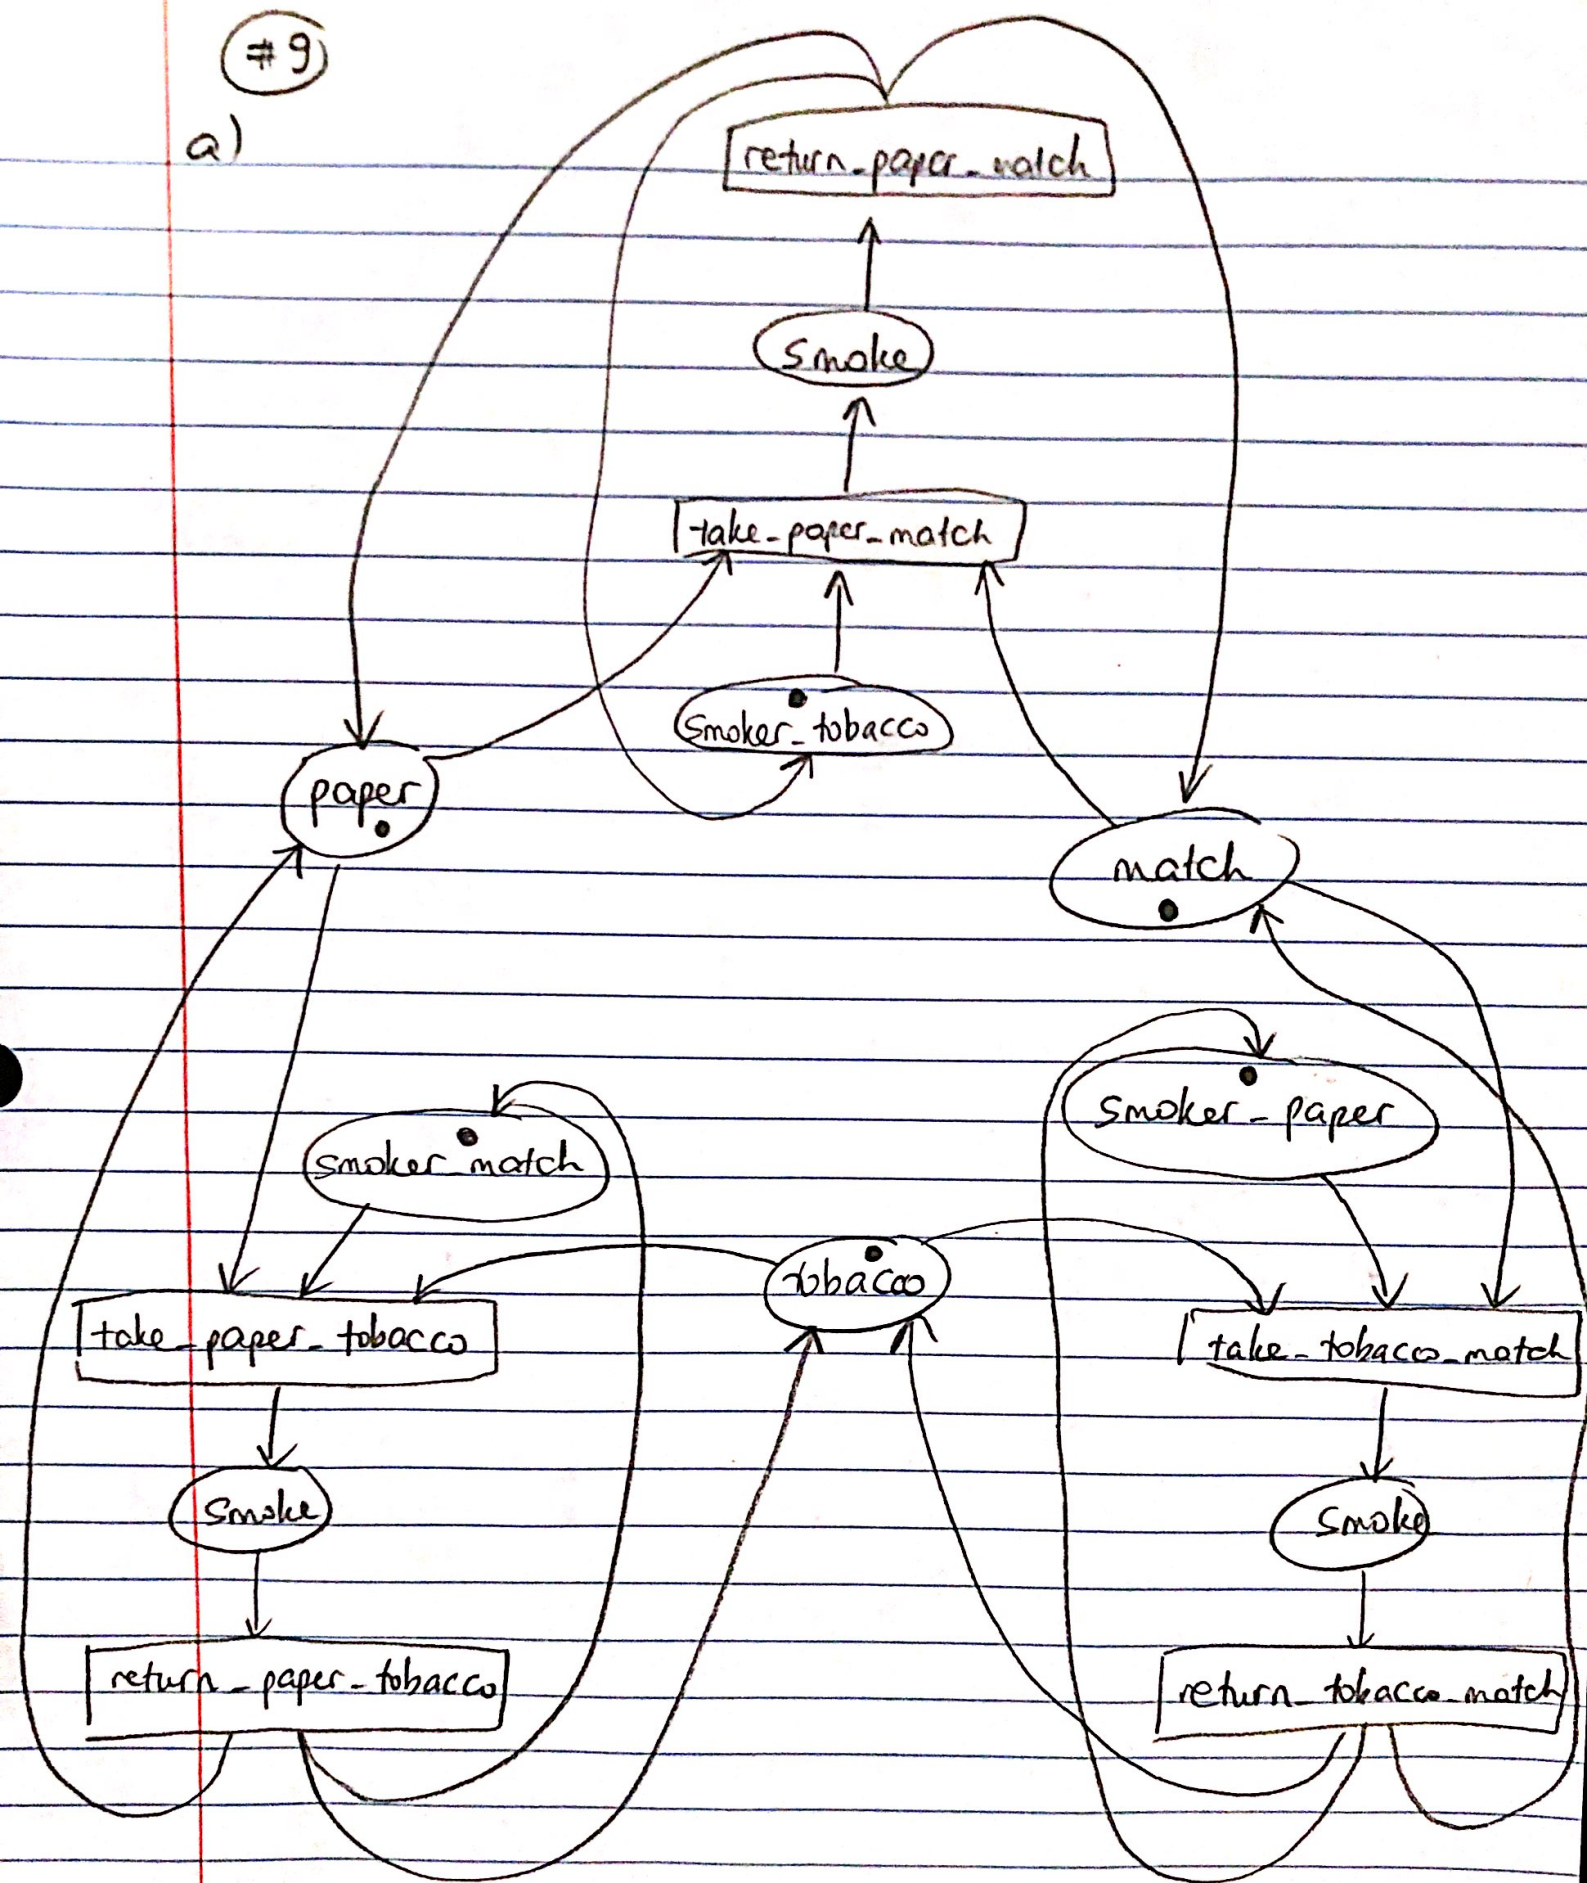 #9
a)
return_paper_match
smoke
take_paper_match
smoker_tobacco
paper
match
smoker_paper
smoker_match
tobacco
take_paper_tobacco
take_tobacco_match
smoke
smoke
return_paper_tobacco
return_tobacco_match